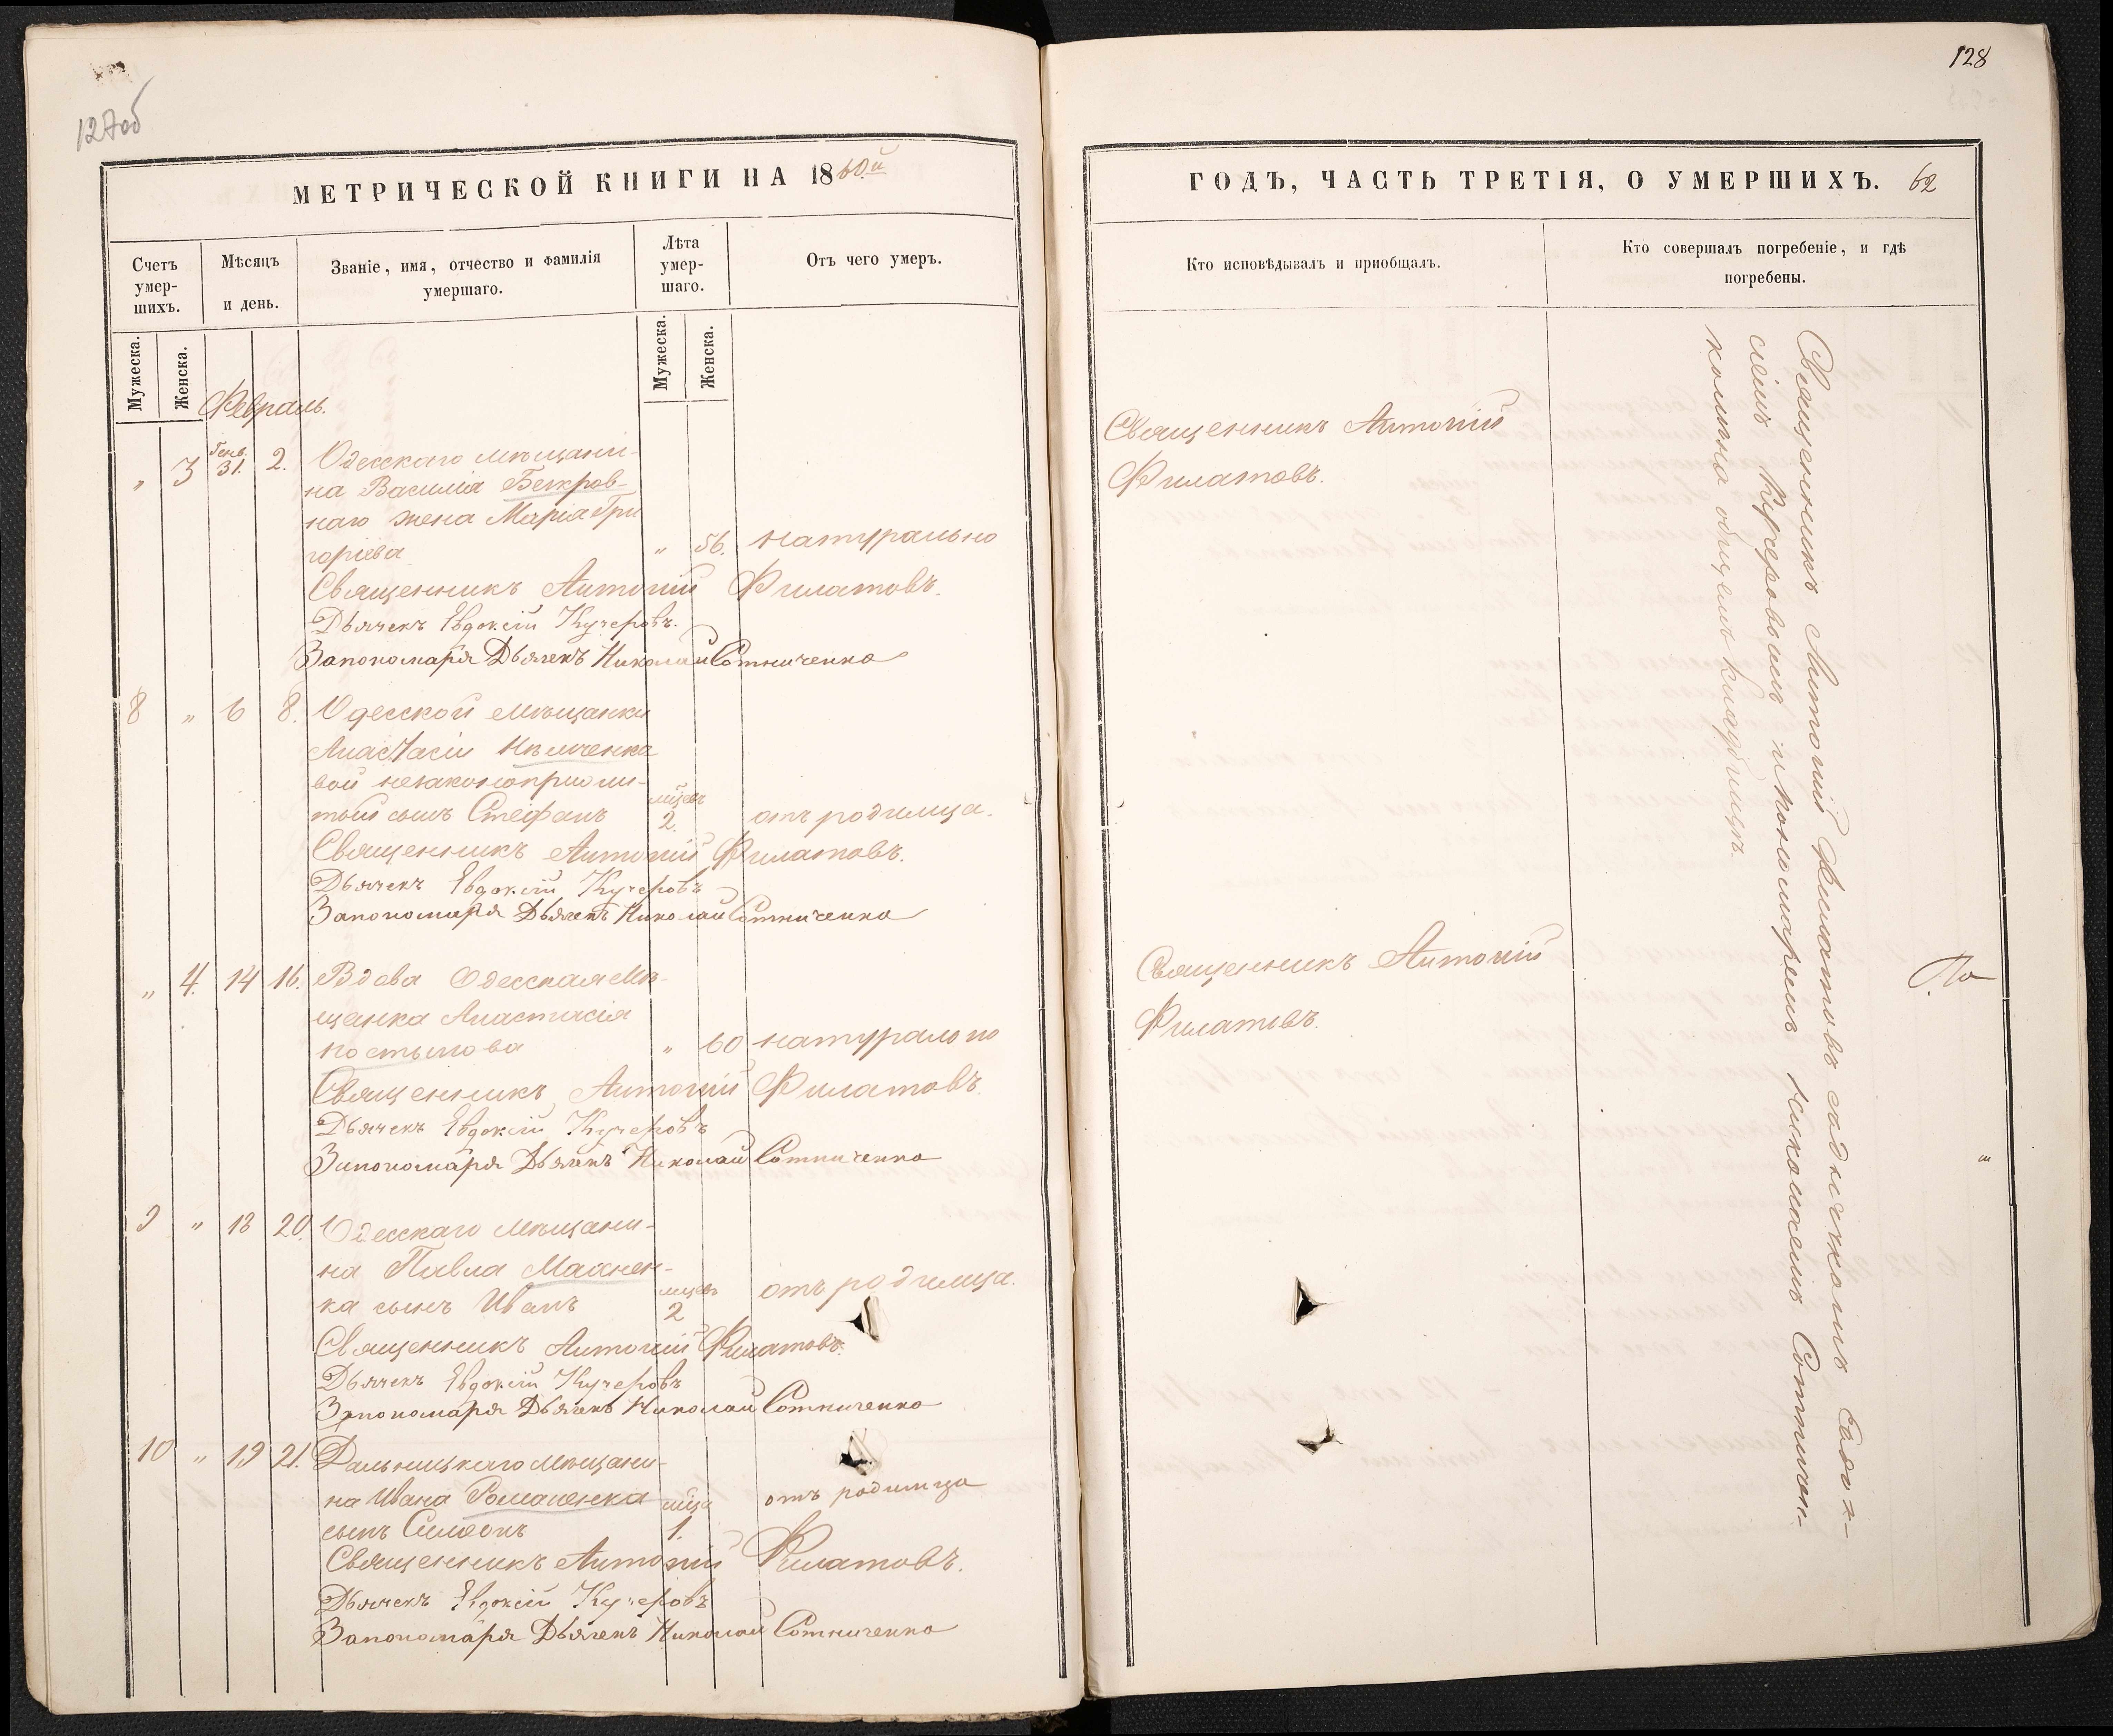 127об
МЕТРИЧЕСКОЙ КНИГИ НА 1860й
Счетъ умер-шихъ.
Мѣсяцъ и день.
Званіе, имя, отчество и фамилія умершаго.
Лѣта умер-шаго.
Отъ чего умеръ.
Мужеска.
Женска.
Мужеска.
Женска.
Февраль.
" 3 Генв. 31. 2. Одесскаго мѣщани-
на Василія Безкров-
наго жена Марія Гри
горіева " 56. натурально
Священникъ Антоній Филатовъ.
Дьячекъ Евдокій Кучеровъ.
За пономаря Дьячекъ Николай Сотниченко
8 " 6 8. Одесской мѣщанки
Анастасіи Нѣмченко
вой незаконоприжи-
тый сынъ Стефанъ мѣцев 2. отъ родимца.
Священникъ Антоній Филатовъ.
Дьячекъ Евдокій Кучеровъ
За пономаря Дьячекъ Николай Сотниченко
" 4. 14 16. Вдова Одесская мѣ-
щанка Анастасія
Костылова " 60 натурально
Священникъ Антоній Филатовъ.
Дьячекъ Евдокій Кучеровъ
За пономаря Дьячекъ Николай Сотниченко
9 " 18 20. Одесскаго мѣщани-
на Павла Махнен-
ка сынъ Иванъ мцев 2 отъ родимца.
Священникъ Антоній Филатовъ.
Дьячекъ Евдокій Кучеровъ
За пономаря Дьячекъ Николай Сотниченко
10 " 19 21. Дальницкаго мѣщани-
на Ивана Романенка мѣца отъ родимца
сынъ Симеонъ 1.
Священникъ Антоній Филатовъ.
Дьячекъ Евдокій Кучеровъ
За пономаря Дьячекъ Николай Сотниченко
128
ГОДЪ, ЧАСТЬ ТРЕТІЯ, О УМЕРШИХЪ. 62
Кто исповѣдывалъ и пріобщалъ.
Кто совершалъ погребеніе, и гдѣ погребены.
Священникъ Антоній
Филатовъ.
Священникъ Антоній
Филатовъ.
Священникъ Антоній Филатовъ съ дьячкомъ Евдок-
сіемъ Кучеровымъ и пономаремъ Николаемъ Сотничен-
комъ на общемъ кладбищѣ.
По